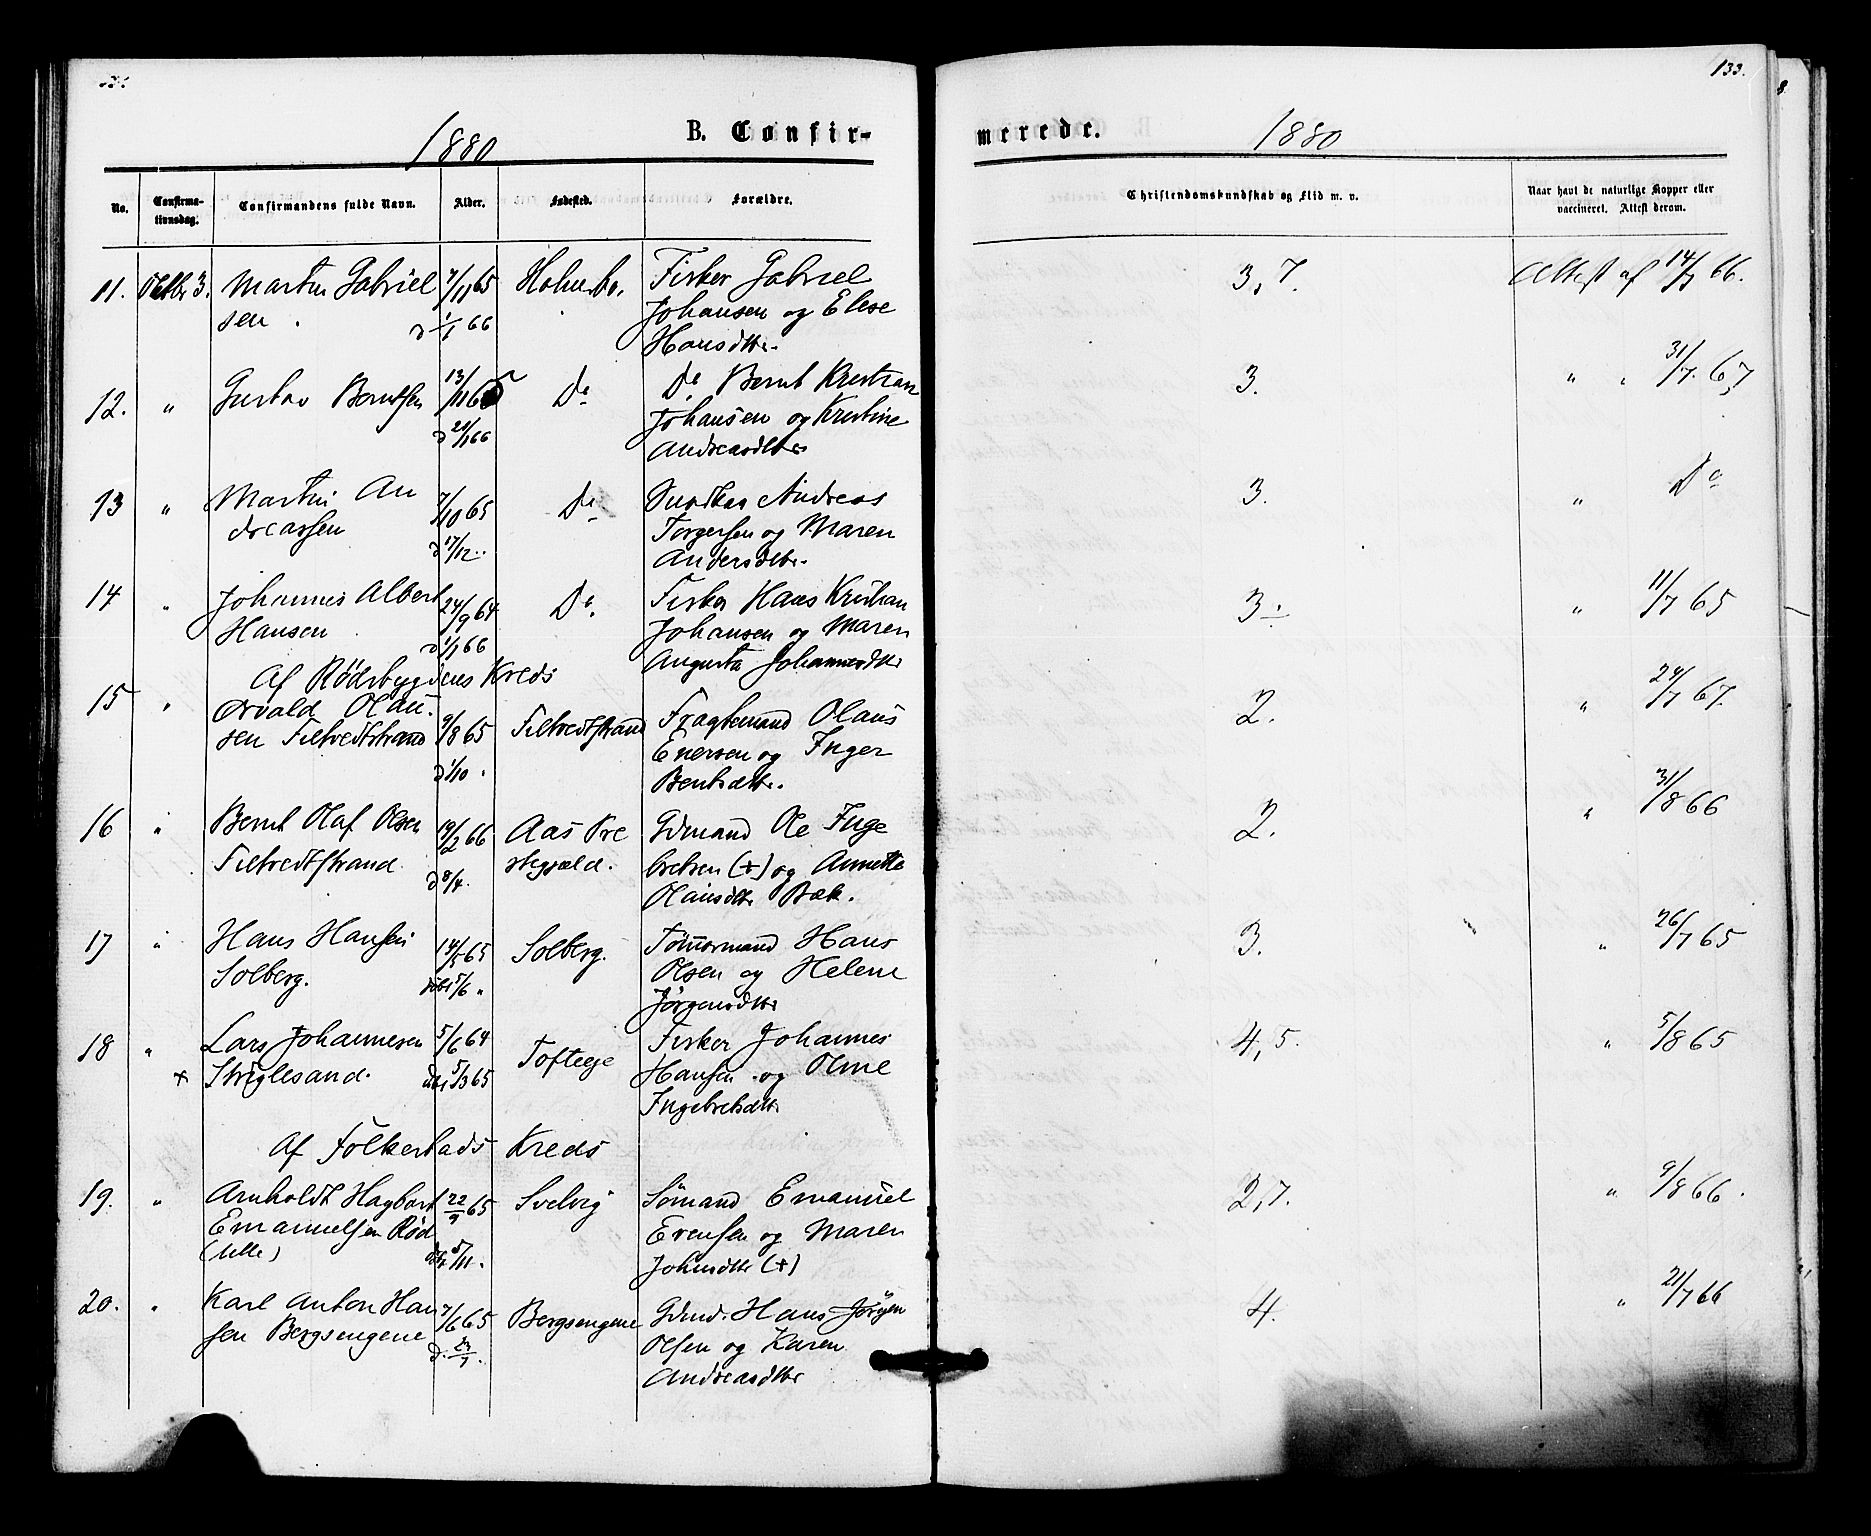 133.
1880
B. Confir-
merede.
1880
No.
Confirma-
tionsdag.
Confirmandens fulde Navn.
Alder.
Fødested.
Forældre.
Christendomskundskab og Flid m. v.
Naar havt de naturlige Kopper eller
vaccineret. Attest derom.
11. Oktbr 3. Martin Gabriel 7/11 65 Holmsbo. Fisker Gabriel 3,7. Attest af 14/7 66.
sen. d 1/1 66 Johansen og Elise
Hansdtr.
12. " Gustav Berntsen 13/11 65 Do Do Bernt Kristian 3. " " 31/7. 67
d 21/1 66 Johansen og Kristine
Andreasdtr
13 " Martin An 7/10 65 Do Andreas 3. " Do
dreassen d 17/12.. Torgersen og Maren
Andersdtr.
14 " Johannes Albert 24/9 64 Do. Fisker Hans Kristian 3 " 11/7 65
Hansen d 1/1 66 Johansen og Maren
Augusta Johannesdtr
Af Rödsbygdens Kreds
15 " Orvald Olau- 9/8 65 Filtvedtstrand Fragtemand Olaus 2. " 24/7 67.
sen Filtvedtstrand d 1/10. Enersen og Inger
Bentsdtr.
16 " Bernt Olaf Olsen 19/2 66 Aas Pre Gdmand Ole Inge 2. " 31/8 66
Filtvedtstrand d 8/4. stegjæld. bretsen (+) og Annette
Olausdtr Bæk.
17 " Hans Hansen 14/5 65 Solberg. Tömmermand Hans 3. " 26/7 65
Solberg. döbt 5/6 " Olsen og Helene
Jörgensdtr
18 " Lars Johannesen 5/6 64 Tofteeje Fisker Johannes 4,5. " 5/8 65
+ Striglesand. döbt 5/3 65 Hansen og Oline
Ingebretsdtr
Af Folkestads Kreds
19. " Arnholdt Hagbart 22/9 65 Svelvig Sömand Emanuel 2,7. " 9/8 66.
Emanuelsen Röd Evensen og Maren
(lille) 5/11. Johnsdtr (+)
20. " Karl Anton Han 7/6 65 Bergsengene Gdmd. Hans Jörgen 4. " 21/7 66
sen Bergsengene d. 23/7. Olsen og Karen
Andreasdtr